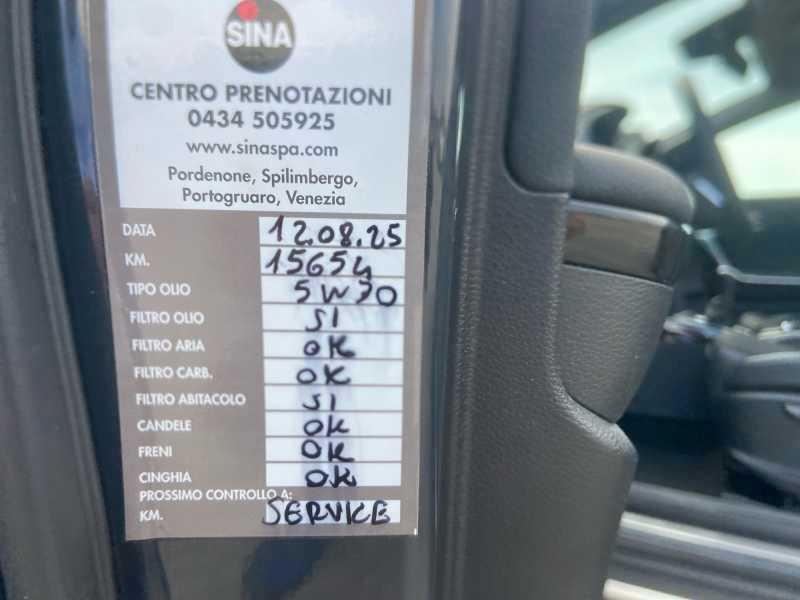 SINA
CENTRO PRENOTAZIONI
0434 505925
www.sinaspa.com
Pordenone, Spilimbergo,
Portogruaro, Venezia
DATA 12.08.25
KM. 15654
TIPO OLIO 5W30
FILTRO OLIO SI
FILTRO ARIA OK
FILTRO CARB. OK
FILTRO ABITACOLO SI
CANDELE OK
FRENI OK
CINGHIA OK
PROSSIMO CONTROLLO A:
KM. SERVICE